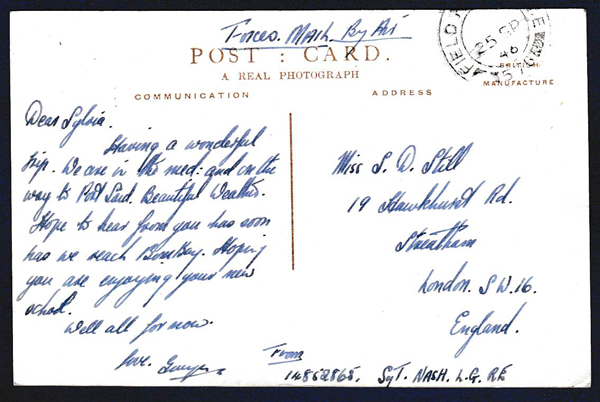 Forces. Mail. By Air
POST : CARD.
A REAL PHOTOGRAPH
BRITISH
MANUFACTURE
COMMUNICATION
ADDRESS
FIELD
25 SP
46
Dear Sylvia.
Having a wonderful
trip. We are in the med: and on the
way to Port Said. Beautiful Weather.
Hope to hear from you has soon
has we reach Bombay. Hoping
you are enjoying your new
school.
Well all for now.
love.
Miss S. D. Still
19 Hawkhurst Rd.
Streatham
London. S.W.16.
England.
From
14852865. SgT. NASH. L.G. RE